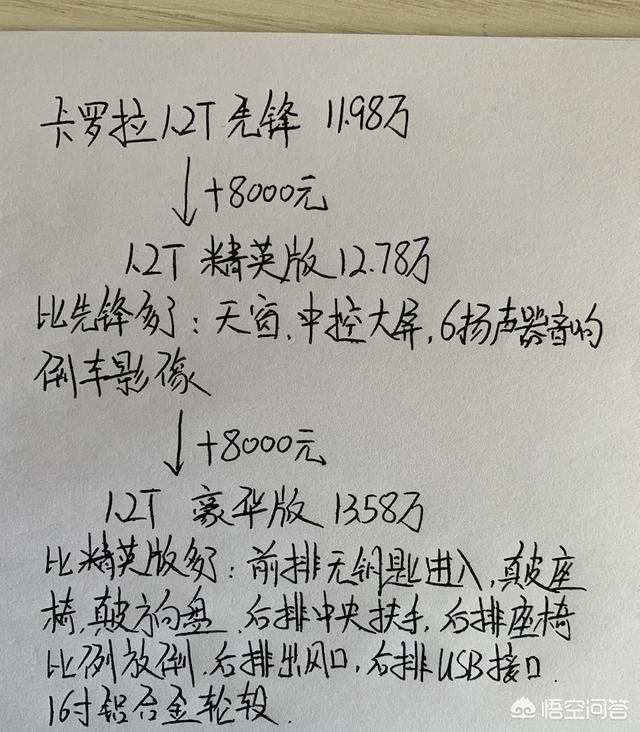 卡罗拉1.2T先锋 11.98万
↓+8000元
1.2T 精英版12.78万
比先锋多了：天窗、中控大屏，6扬声器音响
倒车影像
↓+8000元
1.2T 豪华版 13.58万
比精英版多了：前排无钥匙进入，真皮座
椅，真皮方向盘、后排中央扶手，后排座椅
比例放倒、后排出风口，后排USB接口、
16寸铝合金轮毂、
悟空问答